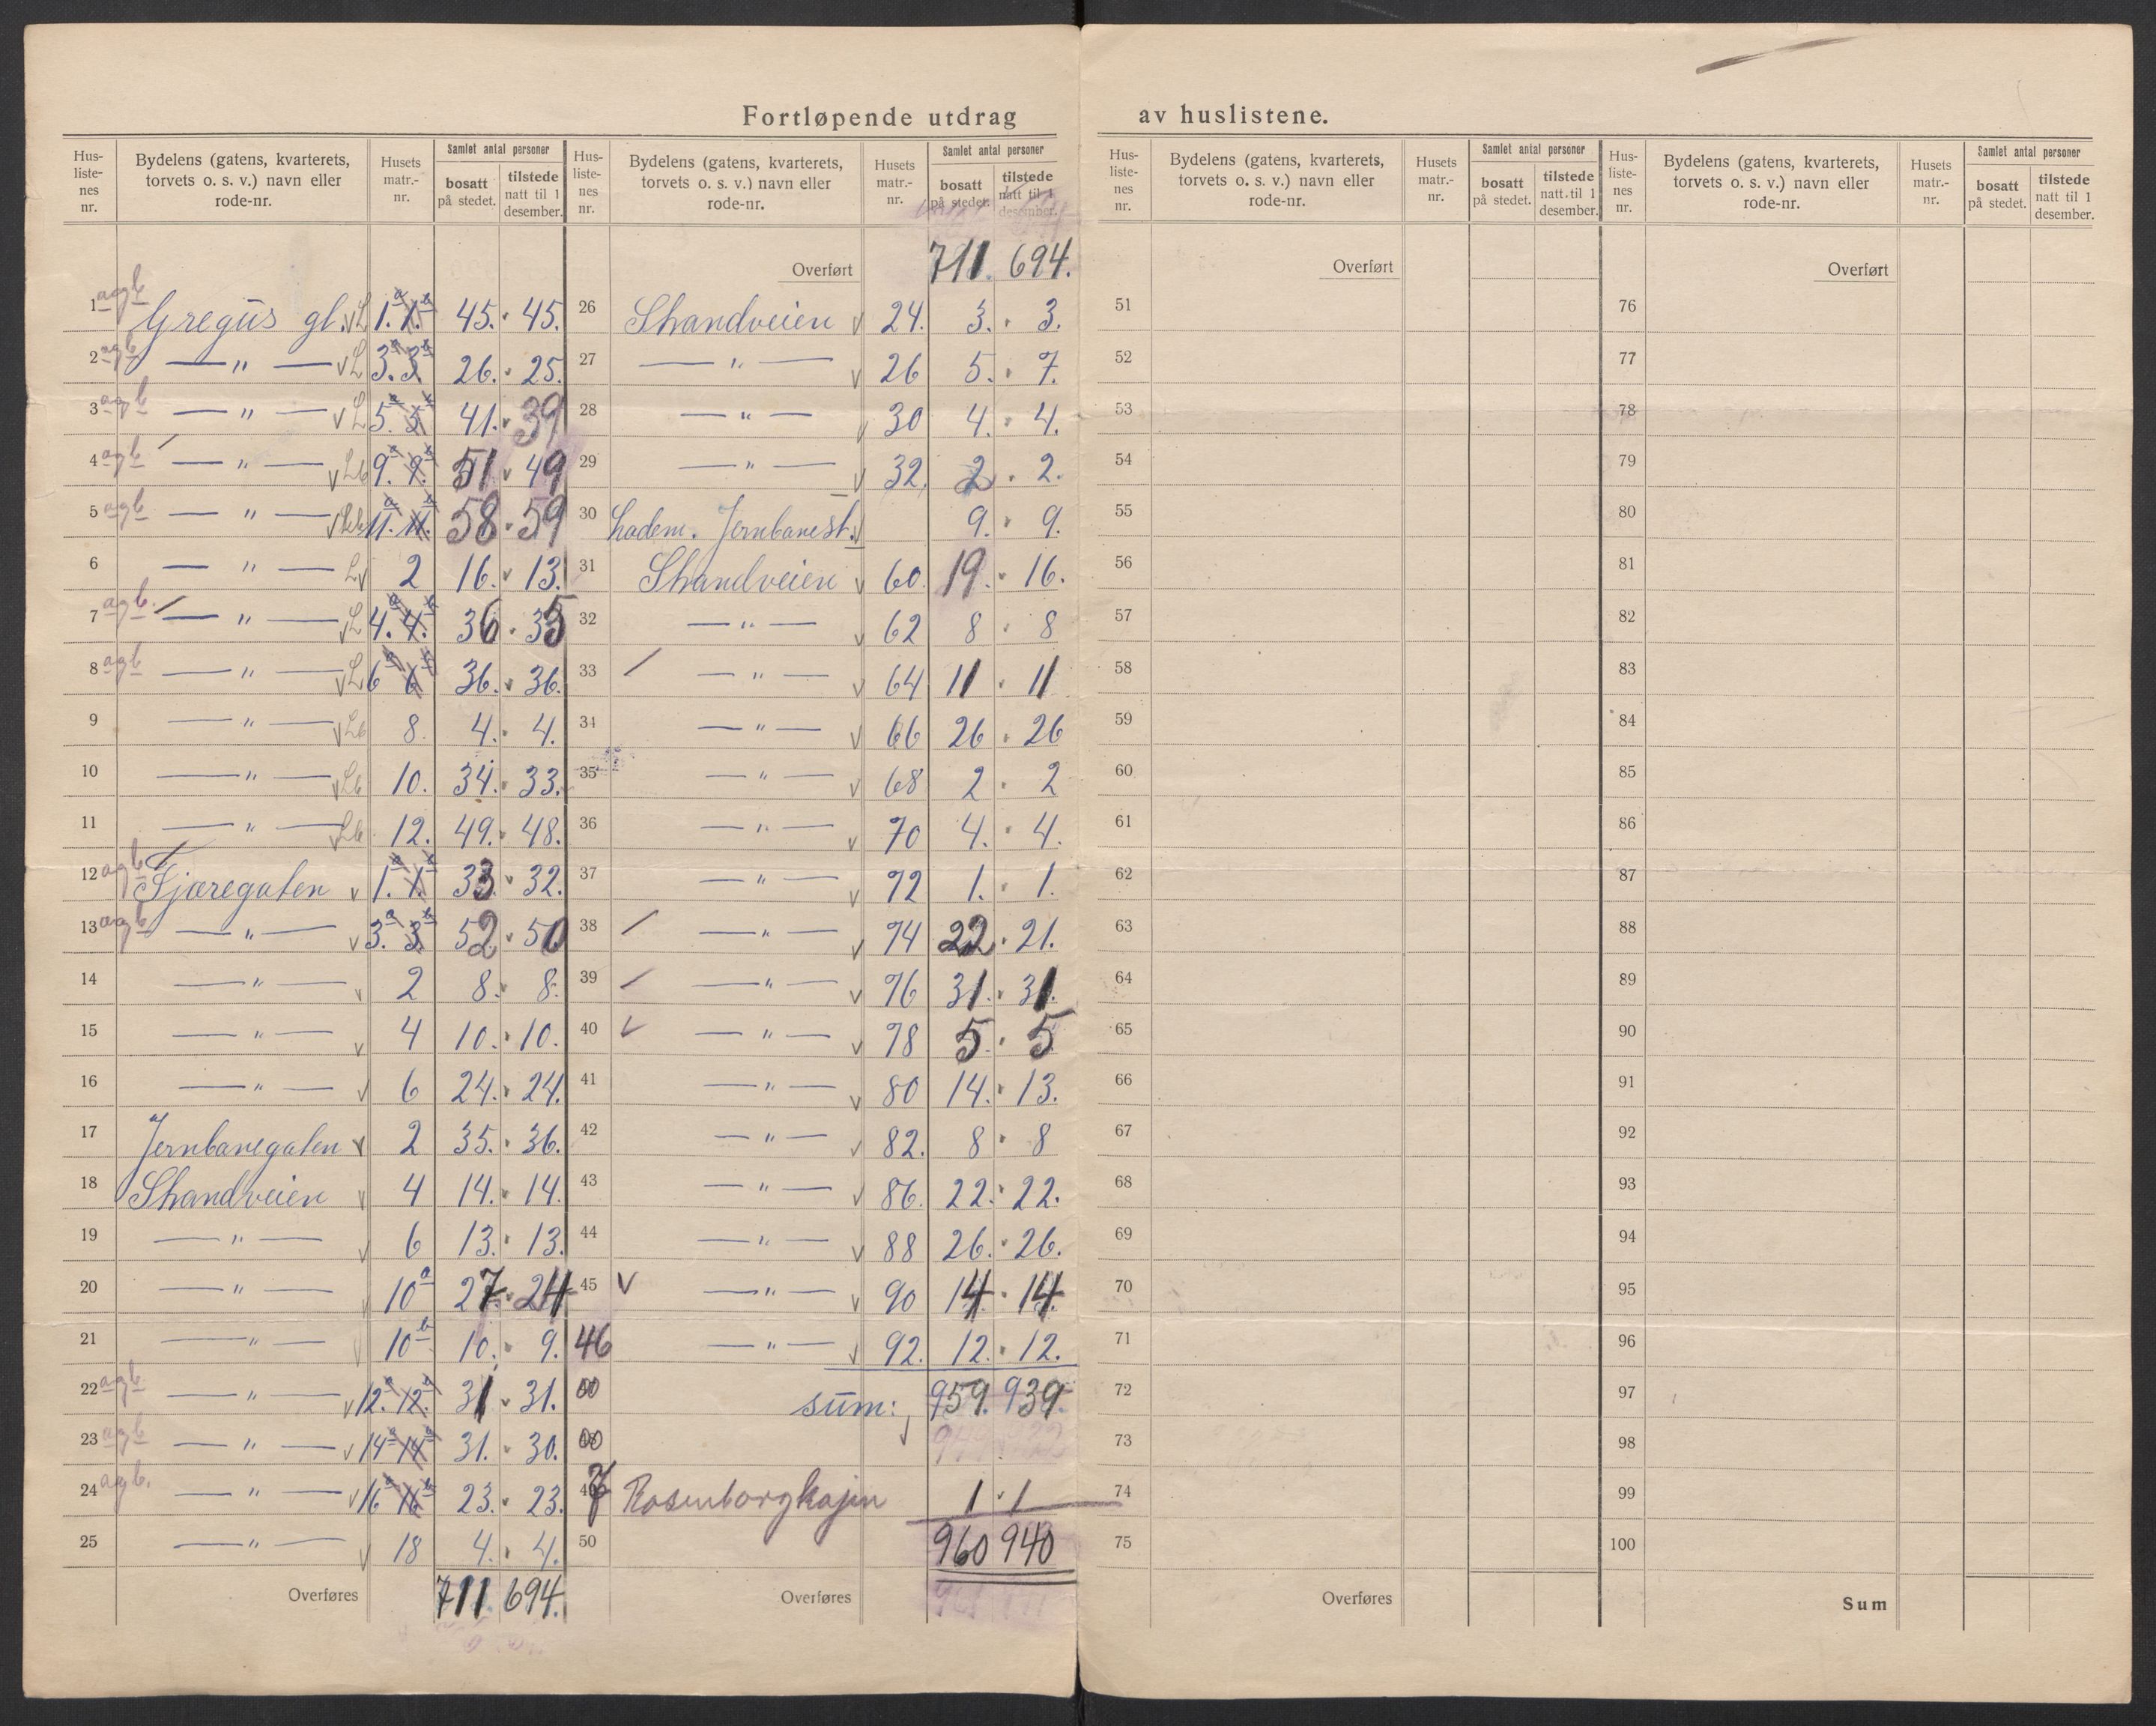 Fortløpende utdrag av huslistene.
Hus-liste-nes nr. | Bydelens (gatens, kvarterets, torvets o. s. v.) navn eller rode-nr. | Husets matr.-nr. | Samlet antal personer: bosatt på stedet. | tilstede natt til 1 desember.
1 agb Gregus gt. v L 1.a 1.b 45. 45.
2 agb — " — v L 3.a 3.b 26. 25.
3 agb — " — v L 5.a 5.b 41. 39
4 agb — " — v Lb 9.a 9.b 51 49
5 agb — " — v Lb 11.a 11.b 58 59
6 — " — L v 2 16. 13.
7 agb. — " — v L 4.a 4.b 36 35
8 agb — " — v L 6a 6b 36. 36.
9 — " — v Lb 8. 4. 4.
10 — " — v Lb 10. 34. 33.
11 — " — v Lb 12. 49. 48.
12 agb Fjæregaten v 1.a 1.b 33. 32.
13 agb — " — v 3.a 3.b 52 50
14 — " — v 2 8. 8.
15 — " — v 4 10. 10.
16 — " — v 6 24. 24.
17 Jernbanegaten v 2 35. 36.
18 Strandveien v 4 14. 14.
19 — " — v 6 13. 13.
20 — " — v 10a 27. 24
21 — " — v 10b 10. 9.
22 agb — " — v 12.a 12.b 31 31.
23 agb — " — v 14a 14b 31. 30.
24 agb. — " — v 16a 16b 23. 23.
25 — " — v 18 4. 4.
Overføres 711. 694.
Hus-liste-nes nr. | Bydelens (gatens, kvarterets, torvets o. s. v.) navn eller rode-nr. | Husets matr.-nr. | Samlet antal personer: bosatt på stedet. | tilstede natt til 1 desember.
Overført 711. 694.
26 Strandveien v 24. 3. 3.
27 — " — v 26 5. 7.
28 — " — v 30 4. 4.
29 — " — v 32. 2 2.
30 Ladem. Jernbanest. v 9. 9.
31 Strandveien v 60. 19. 16.
32 — " — v 62 8 8
33 — " — v 64 11 11
34 — " — v 66 26 26
35 — " — v 68 2 2
36 — " — v 70 4. 4.
37 — " — v 72 1. 1.
38 — " — v 74 22 21.
39 — " — v 76 31. 31.
40 v — " — v 78 5. 5
41 — " — v 80 14. 13.
42 — " — v 82. 8 8
43 — " — v 86. 22. 22.
44 — " — v 88 26. 26.
45 v — " — v 90 14 14.
46 — " — v 92. 12. 12.
sum: 959. 939.
Rosenborgkajen 1 1
50 960 940
Overføres
Hus-liste-nes nr. | Bydelens (gatens, kvarterets, torvets o. s. v.) navn eller rode-nr. | Husets matr.-nr. | Samlet antal personer: bosatt på stedet. | tilstede natt til 1 desember.
Overført
51
52
53
54
55
56
57
58
59
60
61
62
63
64
65
66
67
68
69
70
71
72
73
74
75
Overføres
Hus-liste-nes nr. | Bydelens (gatens, kvarterets, torvets o. s. v.) navn eller rode-nr. | Husets matr.-nr. | Samlet antal personer: bosatt på stedet. | tilstede natt til 1 desember.
Overført
76
77
78
79
80
81
82
83
84
85
86
87
88
89
90
91
92
93
94
95
96
97
98
99
100
Sum